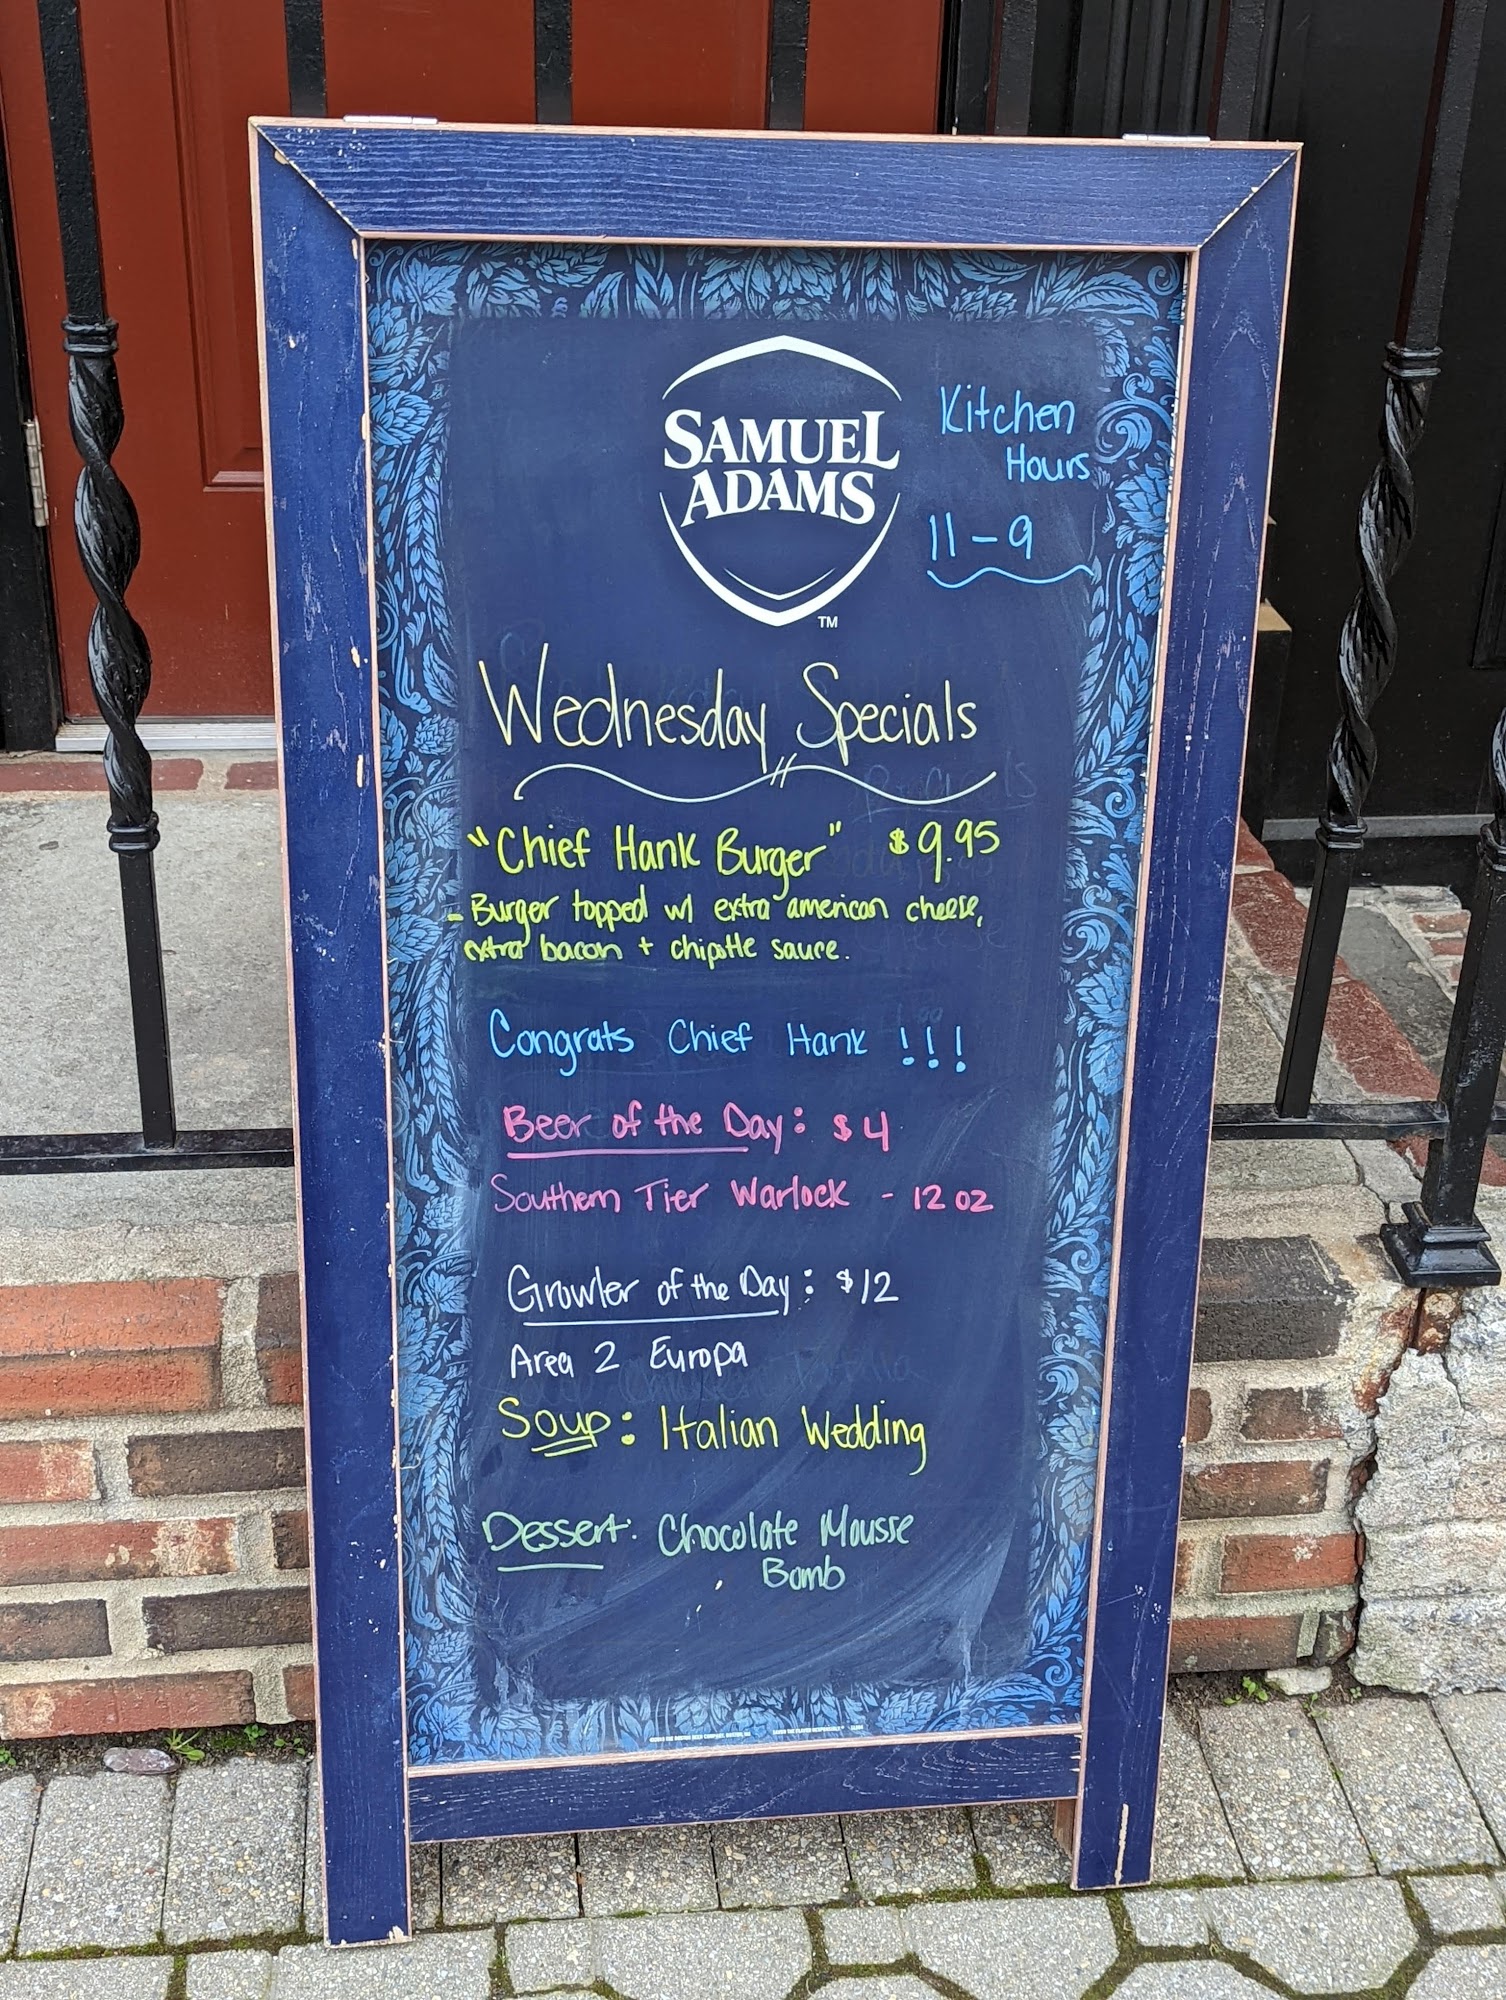 SAMUEL
ADAMS
TM
Kitchen
Hours
11-9
Wednesday Specials
"Chief Hank Burger" $9.95
- Burger topped w/ extra american cheese,
extra bacon + chipotle sauce.
Congrats Chief Hank !!!
Beer of the Day: $4
Southern Tier Warlock - 12 oz
Growler of the Day: $12
Area 2 Europa
Soup: Italian Wedding
Dessert: Chocolate Mousse
Bomb